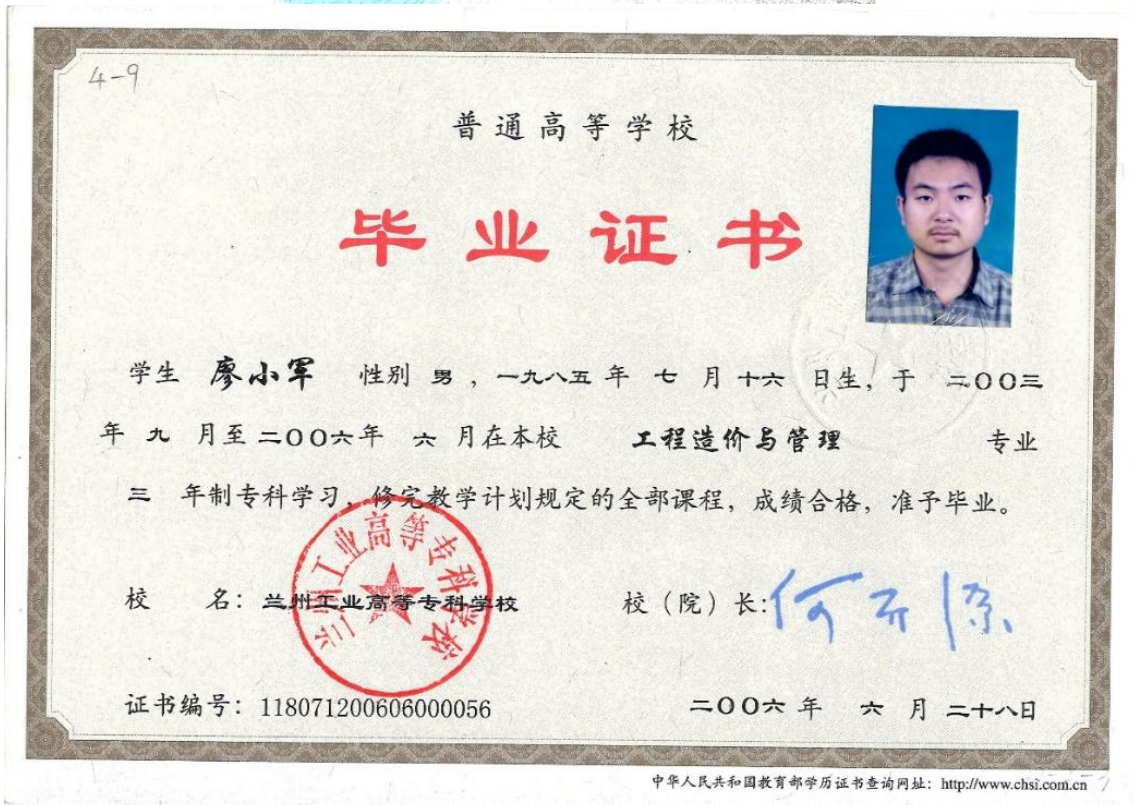 4-9
普通高等学校
毕业证书
学生 廖小军 性别 男 , 一九八五 年 七 月 十六 日生, 于 二〇〇三
年 九 月至 二〇〇六年 六 月在本校 工程造价与管理 专业
三 年制专科学习, 修完教学计划规定的全部课程, 成绩合格, 准予毕业。
兰州工业高等专科学校
校 名: 兰州工业高等专科学校 校（院）长:
证书编号: 118071200606000056 二〇〇六 年 六 月 二十八日
中华人民共和国教育部学历证书查询网址: http://www.chsi.com.cn